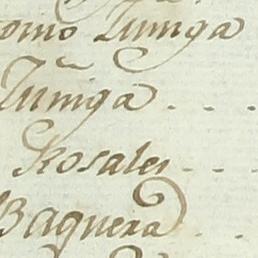 omo Zuniga
Zũniga . . .
Rosales - - -
Baquera . .